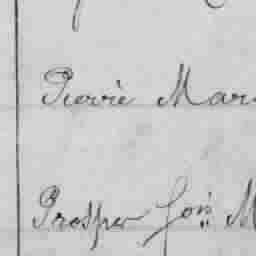 Pierre Mar
Prosper fon: M